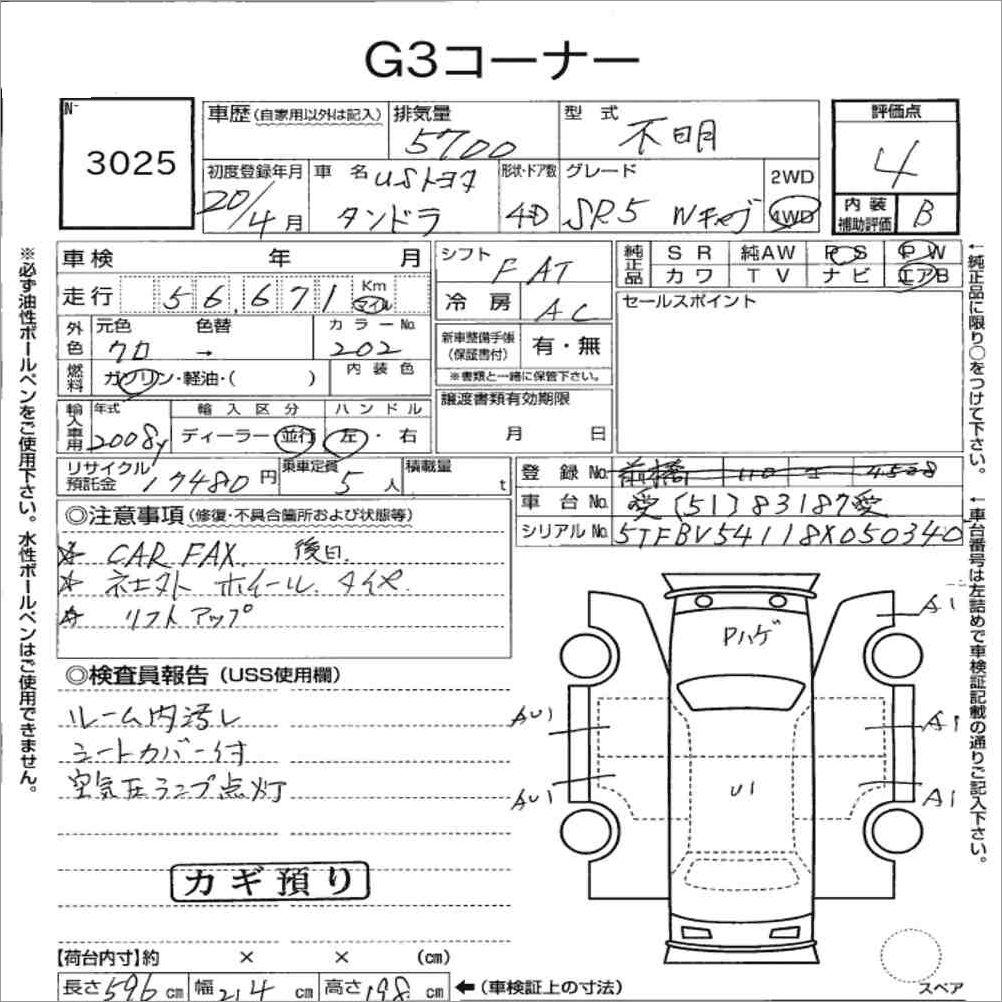 G3コーナー
No.
3025
車歴(自家用以外は記入)
排気量
5700
型式
不明
評価点
4
初度登録年月
20/4月
車名
USトヨタ
タンドラ
形状・ドア数
4D
グレード
SR5 Wキャブ
2WD
4WD
内装補助評価
B
車検 年 月
走行 56,671 Km マイル
外色
元色
クロ
色替
→
カラーNo.
202
燃料
ガソリン・軽油・( )
内装色
輸入車用
年式
2008y
輸入区分
ディーラー・並行
ハンドル
左・右
リサイクル預託金
17480円
乗車定員
5人
積載量
t
シフト
FAT
冷房
AC
新車整備手帳(保証書付)
有・無
※書類と一緒に保管下さい。
譲渡書類有効期限
月 日
純正品
SR 純AW PS PW
カワ TV ナビ エアB
セールスポイント
登録No. 前橋 110
車台No. 愛(51)83187愛
シリアルNo. 5TFBV54118X050340
◎注意事項(修復・不具合箇所および状態等)
☆ CAR FAX. 後日.
☆ ホイール. タイヤ.
☆ リフトアップ
◎検査員報告(USS使用欄)
ルーム内汚レ
シートカバー付
空気圧ランプ点灯
カギ預り
【荷台内寸】約 × × (cm)
長さ596cm 幅214cm 高さ198cm ←(車検証上の寸法)
A1
Pハゲ
AU1
A1
U1
AU1
A1
スペア
※必ず油性ボールペンをご使用下さい。水性ボールペンはご使用できません。
←純正品に限り○をつけて下さい。
←車台番号は左詰めで車検証記載の通りご記入下さい。